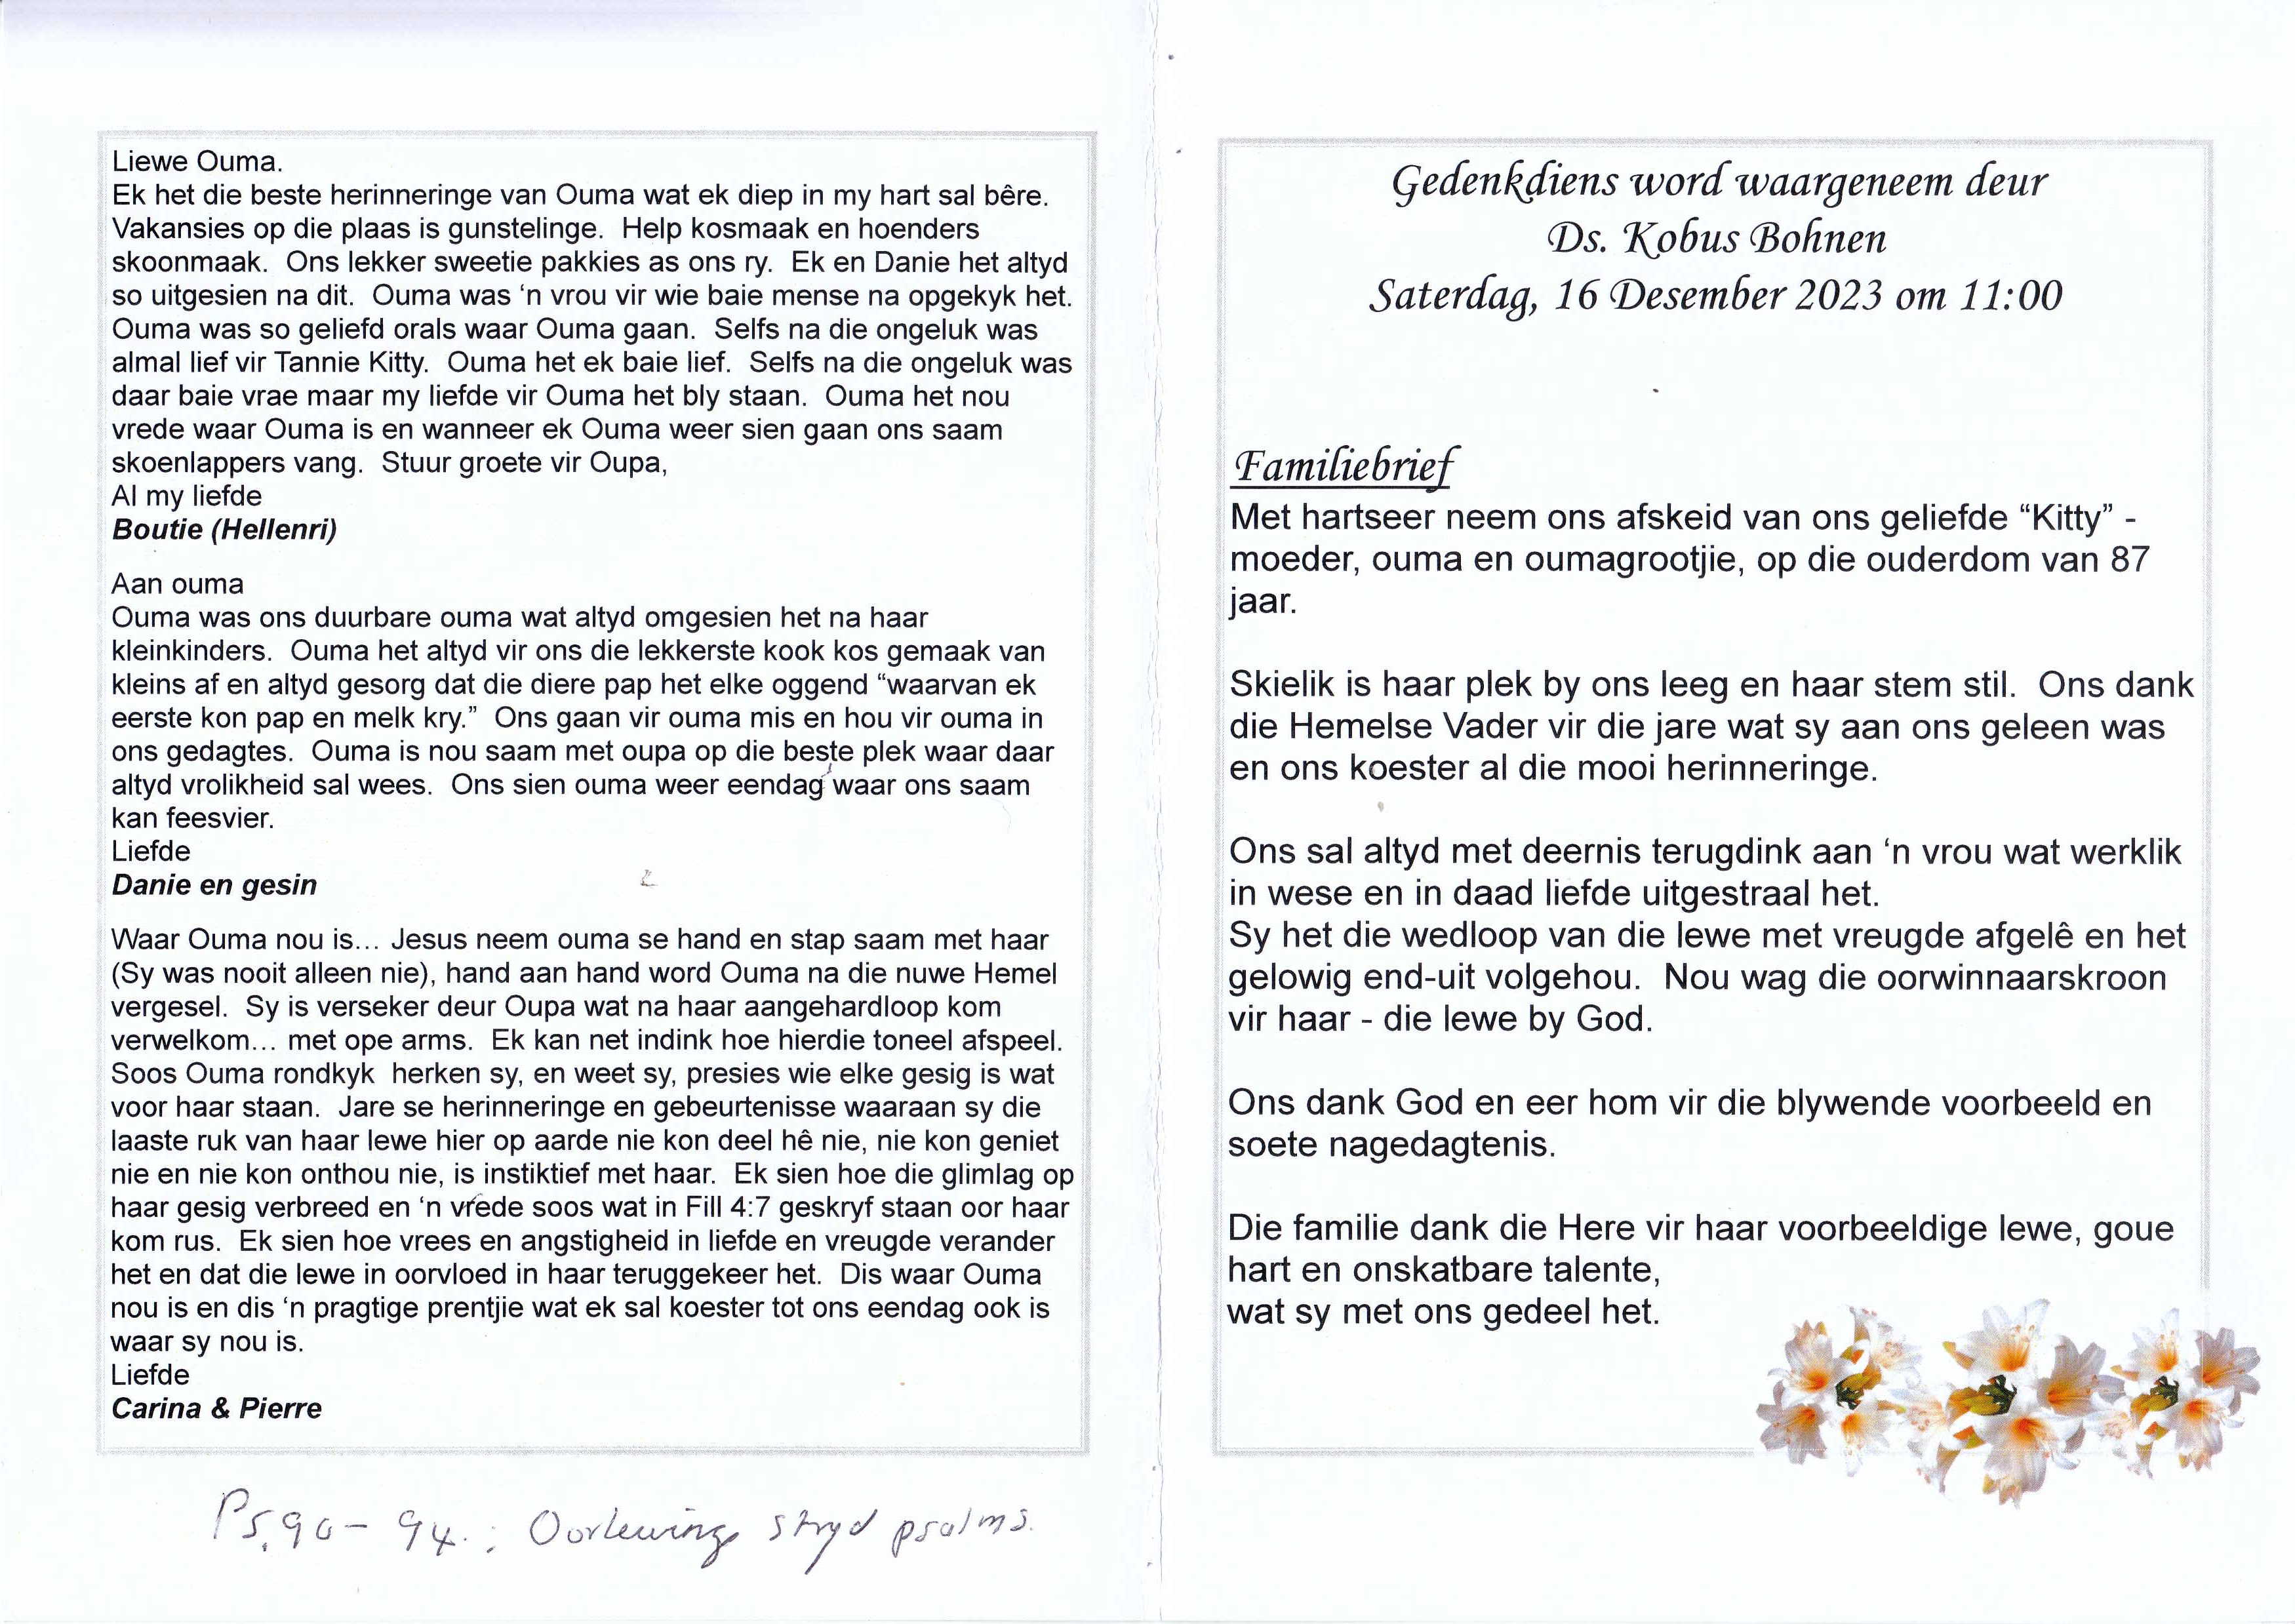 Liewe Ouma.
Ek het die beste herinneringe van Ouma wat ek diep in my hart sal bêre.
Vakansies op die plaas is gunstelinge.  Help kosmaak en hoenders
skoonmaak.  Ons lekker sweetie pakkies as ons ry.  Ek en Danie het altyd
so uitgesien na dit.  Ouma was ‘n vrou vir wie baie mense na opgekyk het.
Ouma was so geliefd orals waar Ouma gaan.  Selfs na die ongeluk was
almal lief vir Tannie Kitty.  Ouma het ek baie lief.  Selfs na die ongeluk was
daar baie vrae maar my liefde vir Ouma het bly staan.  Ouma het nou
vrede waar Ouma is en wanneer ek Ouma weer sien gaan ons saam
skoenlappers vang.  Stuur groete vir Oupa,
Al my liefde
Boutie (Hellenri)
Aan ouma
Ouma was ons duurbare ouma wat altyd omgesien het na haar
kleinkinders.  Ouma het altyd vir ons die lekkerste kook kos gemaak van
kleins af en altyd gesorg dat die diere pap het elke oggend “waarvan ek
eerste kon pap en melk kry.”  Ons gaan vir ouma mis en hou vir ouma in
ons gedagtes.  Ouma is nou saam met oupa op die beste plek waar daar
altyd vrolikheid sal wees.  Ons sien ouma weer eendag waar ons saam
kan feesvier.
Liefde
Danie en gesin
Waar Ouma nou is... Jesus neem ouma se hand en stap saam met haar
(Sy was nooit alleen nie), hand aan hand word Ouma na die nuwe Hemel
vergesel.  Sy is verseker deur Oupa wat na haar aangehardloop kom
verwelkom... met ope arms.  Ek kan net indink hoe hierdie toneel afspeel.
Soos Ouma rondkyk  herken sy, en weet sy, presies wie elke gesig is wat
voor haar staan.  Jare se herinneringe en gebeurtenisse waaraan sy die
laaste ruk van haar lewe hier op aarde nie kon deel hê nie, nie kon geniet
nie en nie kon onthou nie, is instiktief met haar.  Ek sien hoe die glimlag op
haar gesig verbreed en ‘n vrede soos wat in Fill 4:7 geskryf staan oor haar
kom rus.  Ek sien hoe vrees en angstigheid in liefde en vreugde verander
het en dat die lewe in oorvloed in haar teruggekeer het.  Dis waar Ouma
nou is en dis ‘n pragtige prentjie wat ek sal koester tot ons eendag ook is
waar sy nou is.
Liefde
Carina & Pierre
Ps. 90 - 94. : Oorlewing stryd psalms.
Gedenkdiens word waargeneem deur
Ds. Kobus Bohnen
Saterdag, 16 Desember 2023 om 11:00
Familiebrief
Met hartseer neem ons afskeid van ons geliefde “Kitty” -
moeder, ouma en oumagrootjie, op die ouderdom van 87
jaar.
Skielik is haar plek by ons leeg en haar stem stil.  Ons dank
die Hemelse Vader vir die jare wat sy aan ons geleen was
en ons koester al die mooi herinneringe.
Ons sal altyd met deernis terugdink aan ‘n vrou wat werklik
in wese en in daad liefde uitgestraal het.
Sy het die wedloop van die lewe met vreugde afgelê en het
gelowig end-uit volgehou.  Nou wag die oorwinnaarskroon
vir haar - die lewe by God.
Ons dank God en eer hom vir die blywende voorbeeld en
soete nagedagtenis.
Die familie dank die Here vir haar voorbeeldige lewe, goue
hart en onskatbare talente,
wat sy met ons gedeel het.